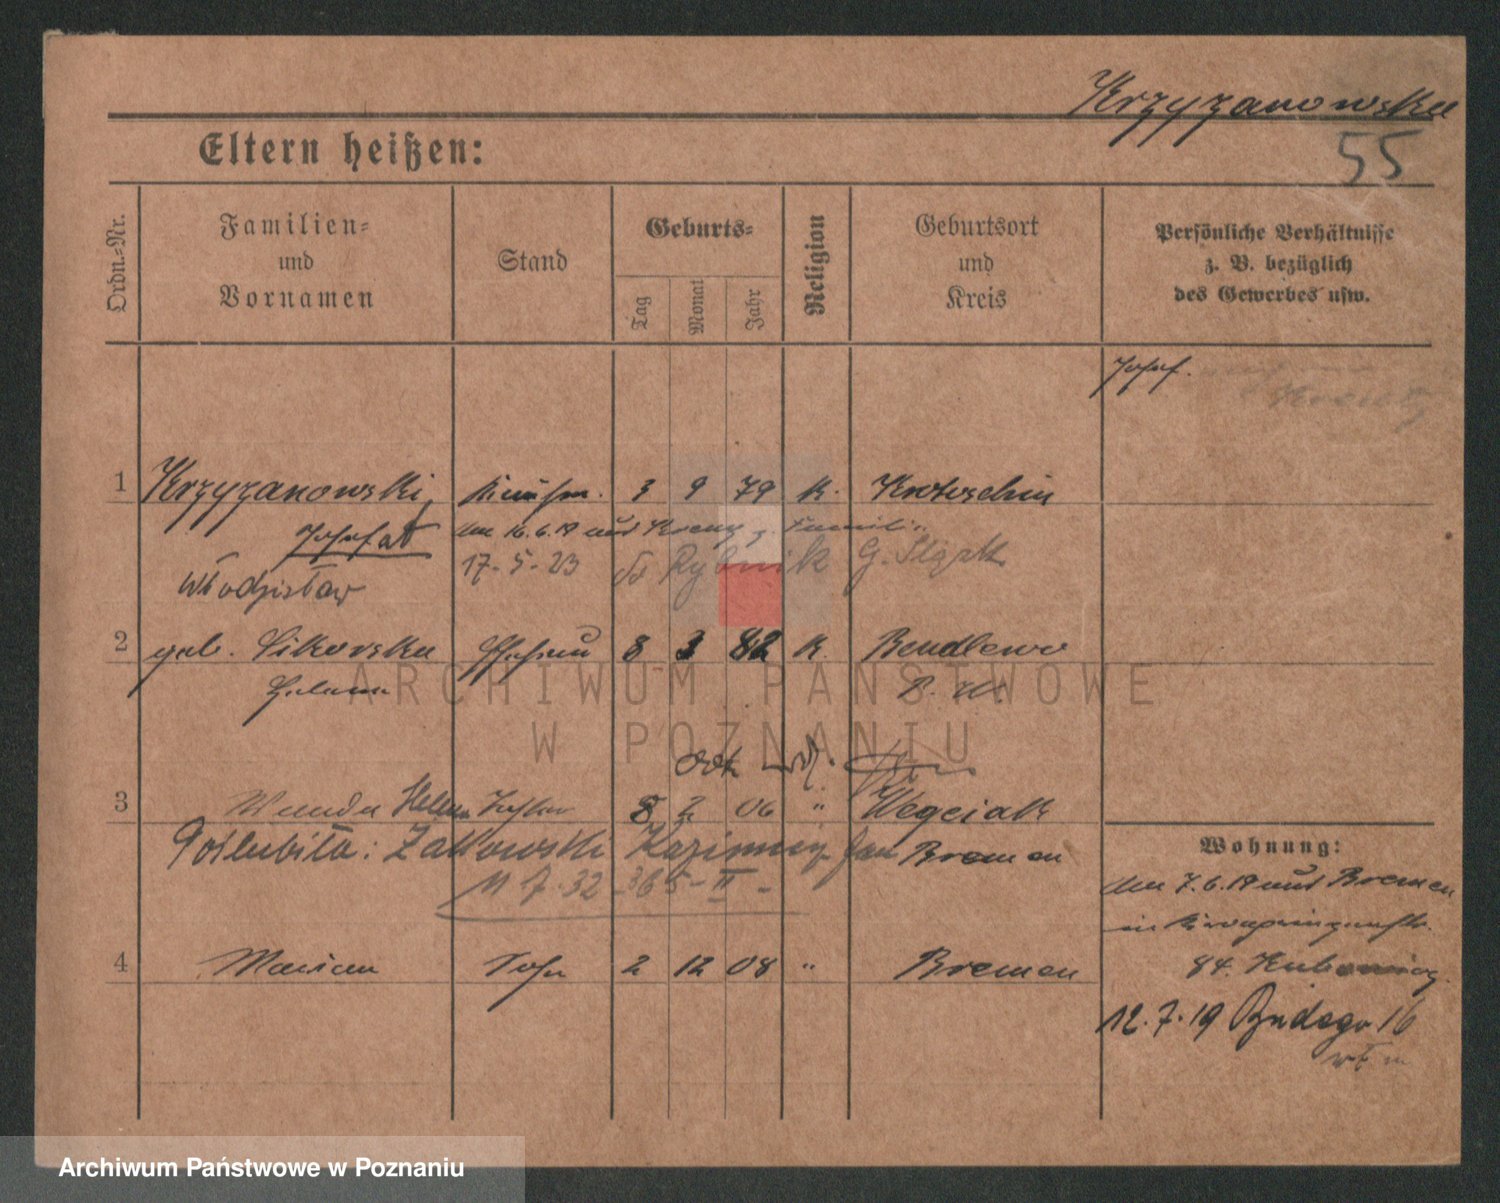 Krzyzanowska
55
Eltern heißen:
Ordn.=Nr.
Familien=
und
Vornamen
Stand
Geburts=
Tag
Monat
Jahr
Religion
Geburtsort
und
Kreis
Persönliche Verhältnisse
z. B. bezüglich
des Gewerbes usw.
Josef.
1 Krzyzanowski, 3 9 79 K. Krotoschin
Josefat am 16.6.19 aus Kreuz z. Familie
Włodzisław 17-5-23 do Rybnik G. Śląsk
2 geb. Sikorska Ehefrau 8 3 82 K. Bendlewo
Helena P. W.
3 Wanda Helena Tochter 8 2 06 " Wegeiack
Poślubiła: Żakowski Kazimierz Jan Bremen
11 7.32 365-II-
4 Marian Sohn 2 12 08 " Bremen
Wohnung:
Am 7.6.19 aus Bremen
in
84.
12.7.19 16
ARCHIWUM PAŃSTWOWE
W POZNANIU
Archiwum Państwowe w Poznaniu